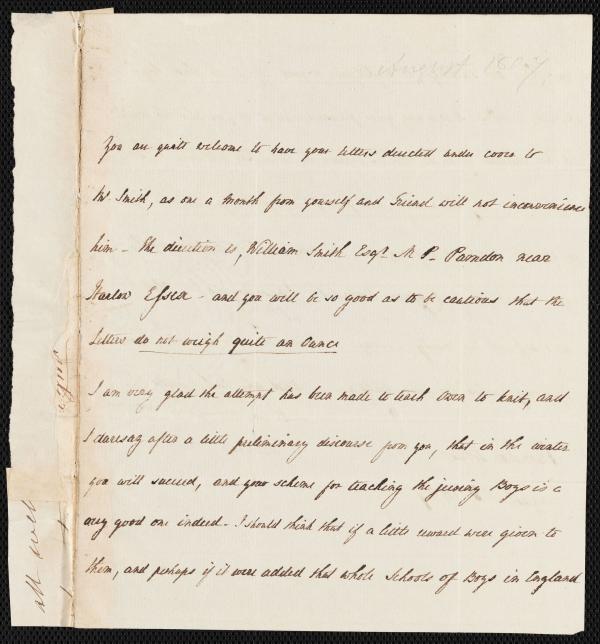 August 1807
You are quite welcome to have your letters directed under cover to
Mr. Smith, as one a Month from yourself and Friend will not inconvenience
him – The direction is, William Smith Esqr. M P. Parndon near
Harlow Essex – and you will be so good as to be cautious that the
Letters do not weigh quite an Ounce
I am very glad the attempt has been made to teach Owen to knit, and
I daresay after a little preliminary discourse from you, that in the winter
you will succeed, and your scheme for teaching the Boys is a
very good one indeed – I should think that if a little reward were given to
them, and perhaps if it were added that whole Schools of Boys in England
all well